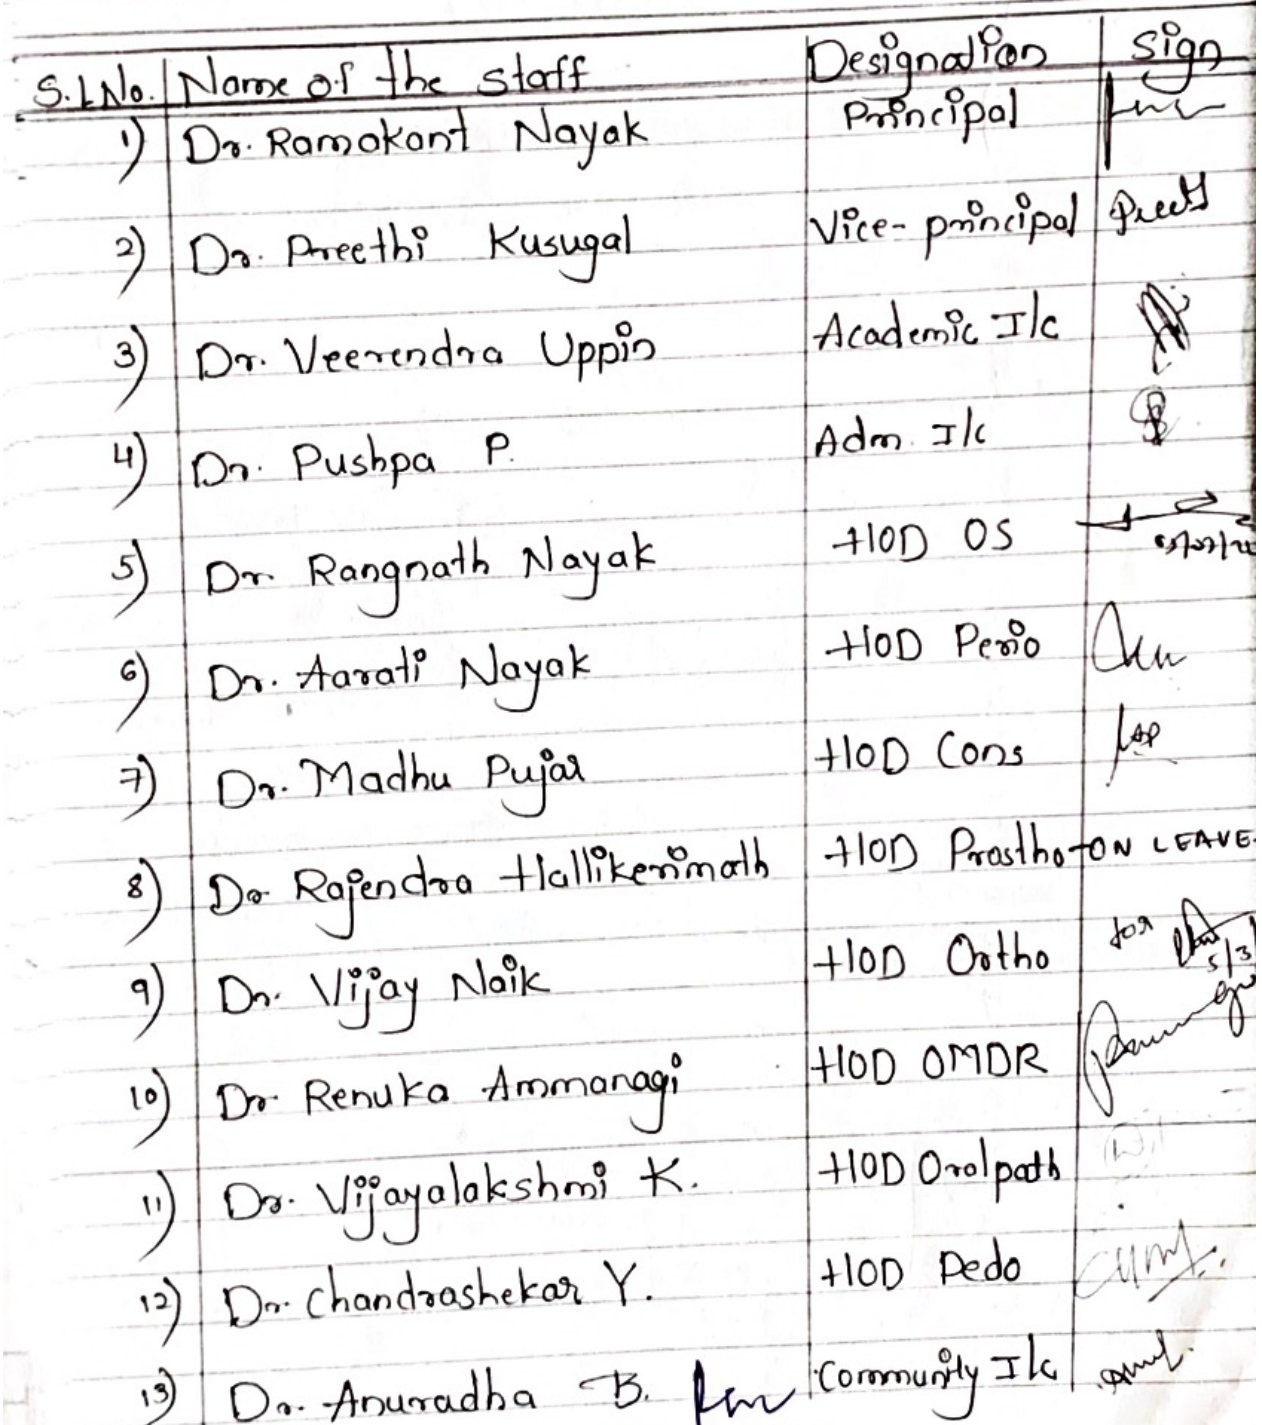 S.LNo. Name of the staff Designation Sign
1) Dr. Ramakant Nayak Principal
2) Dr. Preethi Kusugal Vice-principal
3) Dr. Veerendra Uppin Academic I/c
4) Dr. Pushpa P. Adm. I/c
5) Dr. Rangnath Nayak HOD OS
6) Dr. Aarati Nayak HOD Perio
7) Dr. Madhu Pujar HOD Cons
8) Dr Rajendra Hallikerimath HOD Prostho ON LEAVE.
9) Dr. Vijay Naik HOD Ortho for
10) Dr. Renuka Ammanagi HOD OMDR
11) Dr. Vijayalakshmi K. HOD Oralpath
12) Dr. Chandrashekar Y. HOD Pedo
13) Dr. Anuradha B. Community I/c